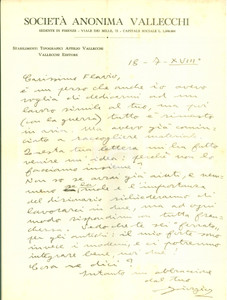 SOCIETÀ ANONIMA VALLECCHI
SEDENTE IN FIRENZE - VIALE DEI MILLE, 72 - CAPITALE SOCIALE L.
STABILIMENTI TIPOGRAFICI ATTILIO VALLECCHI
VALLECCHI EDITORE
18-7-XVIII°
Carissimo Flavio,
è un pezzo che anch'io avevo
voglia di dedicarmi ad un
lavoro simile al tuo, ma poi
(con la guerra) tutto è rimasto
in aria. Ma avevo già comin-
ciato a raccogliere materiale.
Questa tua lettera mi ha fatto
venire un'idea: perché non lo
facciamo insieme?
Non so se avrai già aiuti, e nem-
meno se la mole e l'importanza
del dizionario richiederanno di
lavorarci in due, ma ad ogni
modo rispondimi in tutta fran-
chezza. Vedo che te sei ferrato
per gli antichi: il mio forte sono
invece i moderni, e ci potremmo
integrare bene, noi due!
Cosa ne dici?
Intanto un abbraccio
dal tuo